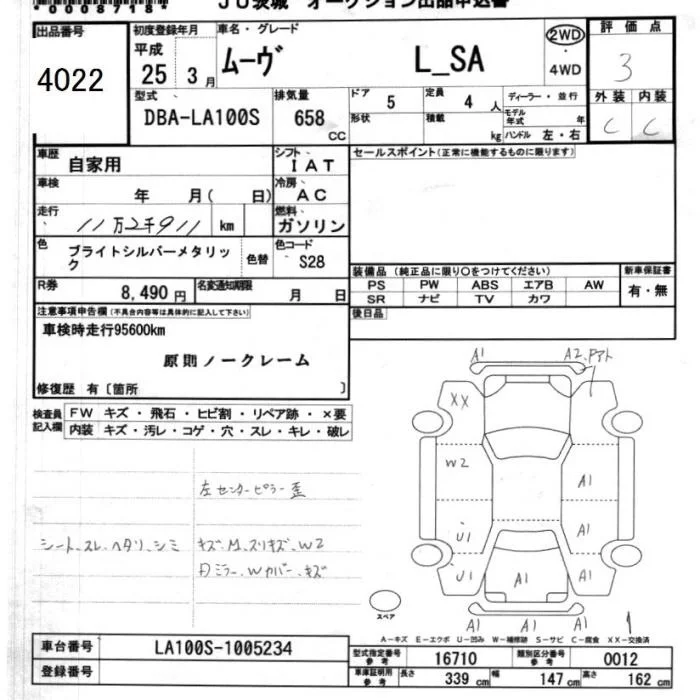 *0008718*
JU茨城 オークション出品申込書
出品番号
4022
初度登録年月
平成
25 3月
車名・グレード
ムーヴ L_SA
2WD
・
4WD
評価点
3
外装 内装
C C
型式
DBA-LA100S
排気量
658
CC
ドア 5
定員 4 人
形状
積載 kg
ディーラー・並行
モデル年式 年
ハンドル 左・右
車歴
自家用
シフト
IAT
車検
年 月( 日)
冷房
AC
走行
11万2千911 km
燃料
ガソリン
色
ブライトシルバーメタリック
色替
色コード
S28
R券
8,490 円
名変通知期限
月 日
セールスポイント(正常に機能するものに限ります)
装備品(純正品に限り○をつけてください)
PS PW ABS エアB AW
SR ナビ TV カワ
新車保証書
有・無
後日品
注意事項申告欄(不具合内容等は具体的に記入して下さい)
車検時走行95600km
原則ノークレーム
修復歴 有〔箇所 〕
検査員記入欄
FW キズ・飛石・ヒビ割・リペア跡・×要
内装 キズ・汚レ・コゲ・穴・スレ・キレ・破レ
左センターピラー歪
シート、スレ、ヘタリ、シミ
キズ、M、スリキズ、W2
ミラー、Wカバー、キズ
A1
A2、
XX
W2
A1
U1
A1
U1
A1
A1
A1
A1
スペア
A-キズ E-エクボ U-凹み W-補修跡 S-サビ C-腐食 XX-交換済
車台番号
LA100S-1005234
登録番号
型式指定番号
参考
16710
類別区分番号
参考
0012
車庫証明用
参考
長さ 339 cm
幅 147 cm
高さ 162 cm